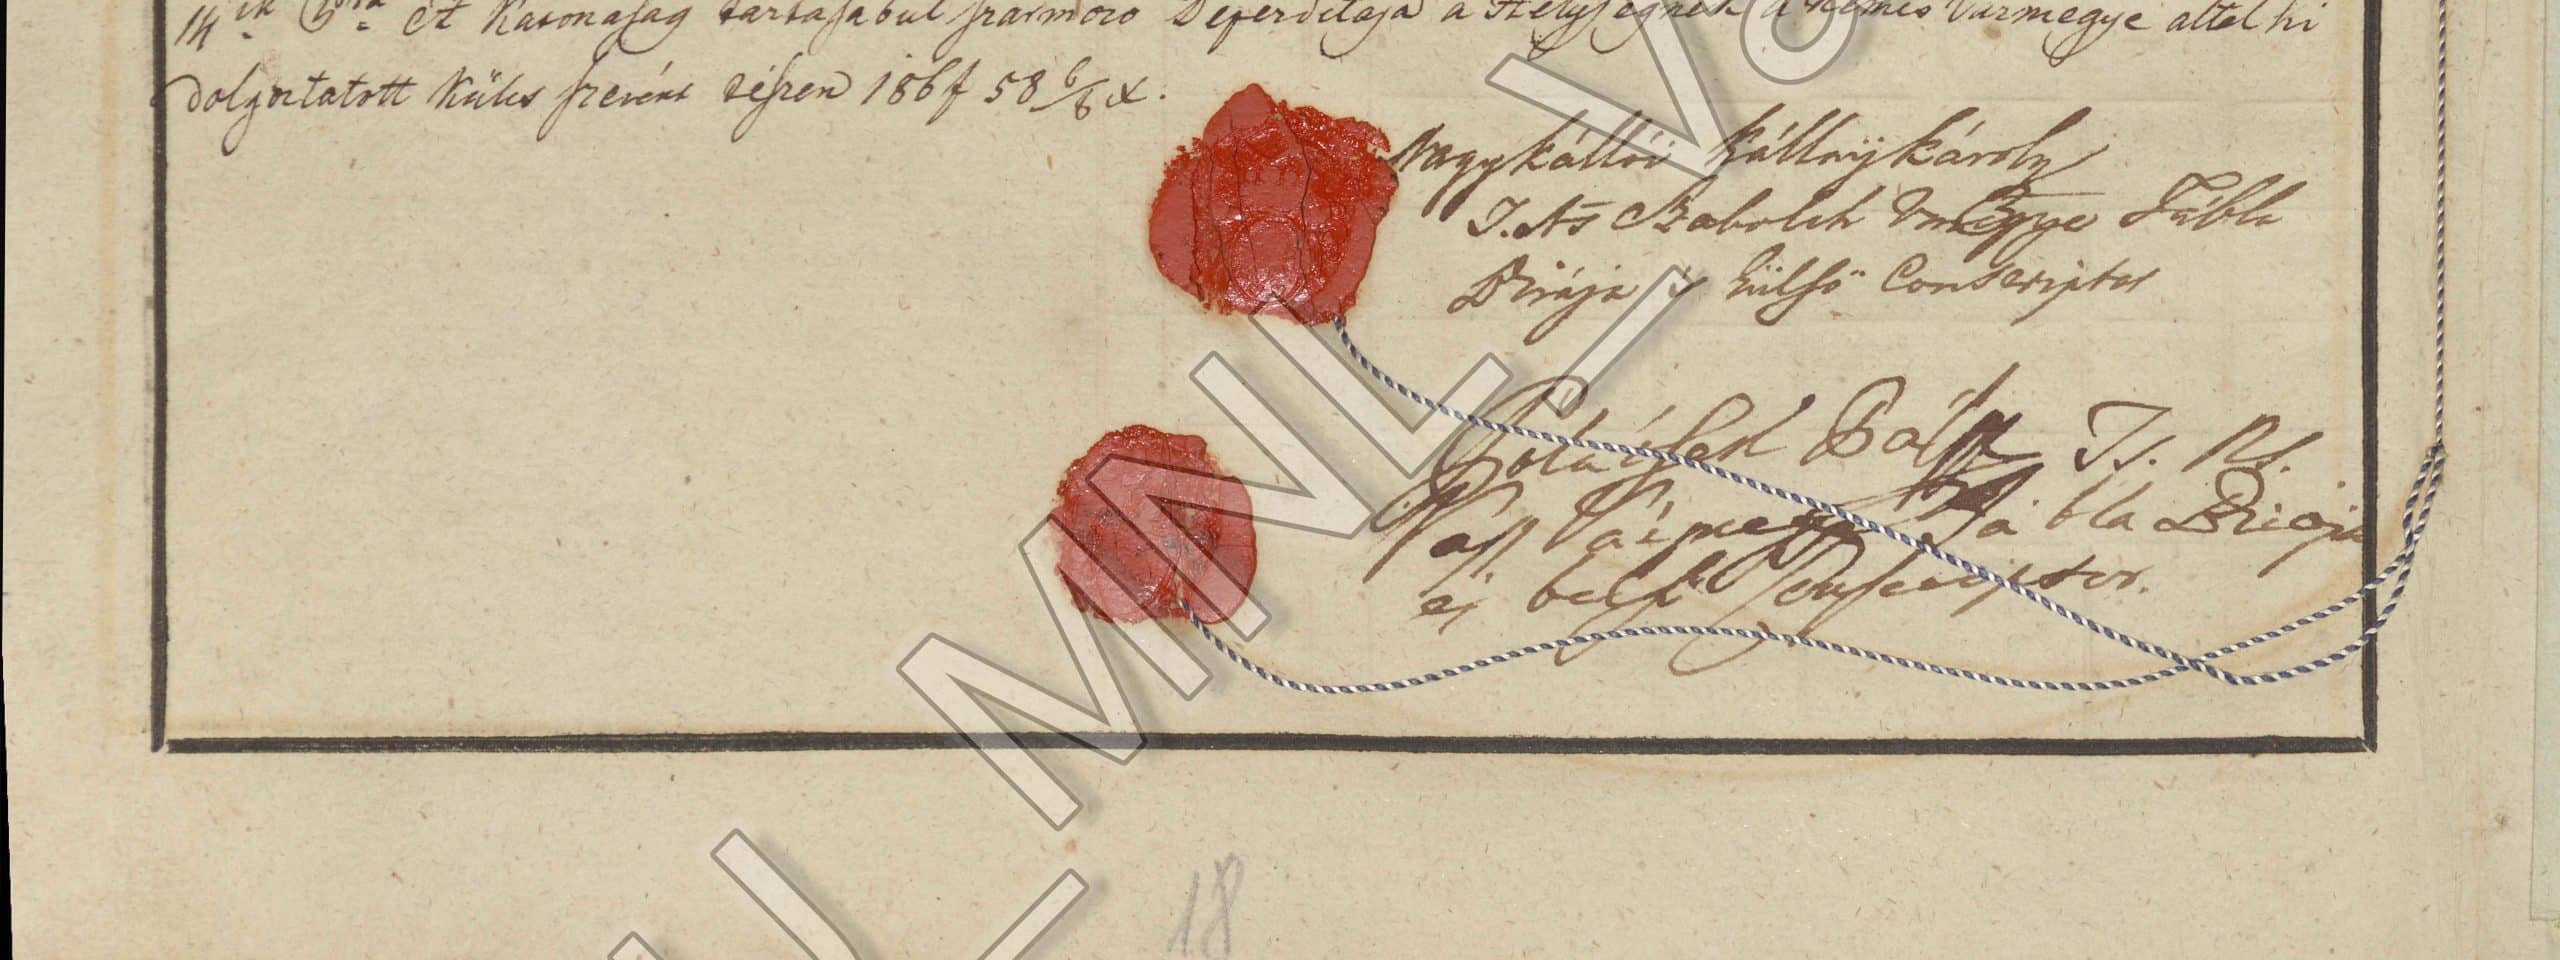 14ik A Katonaság tartásábul származó Deperditája a Helységnek a Nemes Vármegye által ki
dolgoztatott Kúlcs szerént tészen 186 f 58 6/8 x.
Nagykállói Kállaÿ Károly
T. Ns Szabolch Vmegye Tábla
Birája 's külső Conscriptor
Bálás Ts. Ns.
Vas Vármegye Tábla Birája
és belső Conscriptor.
18
MNL